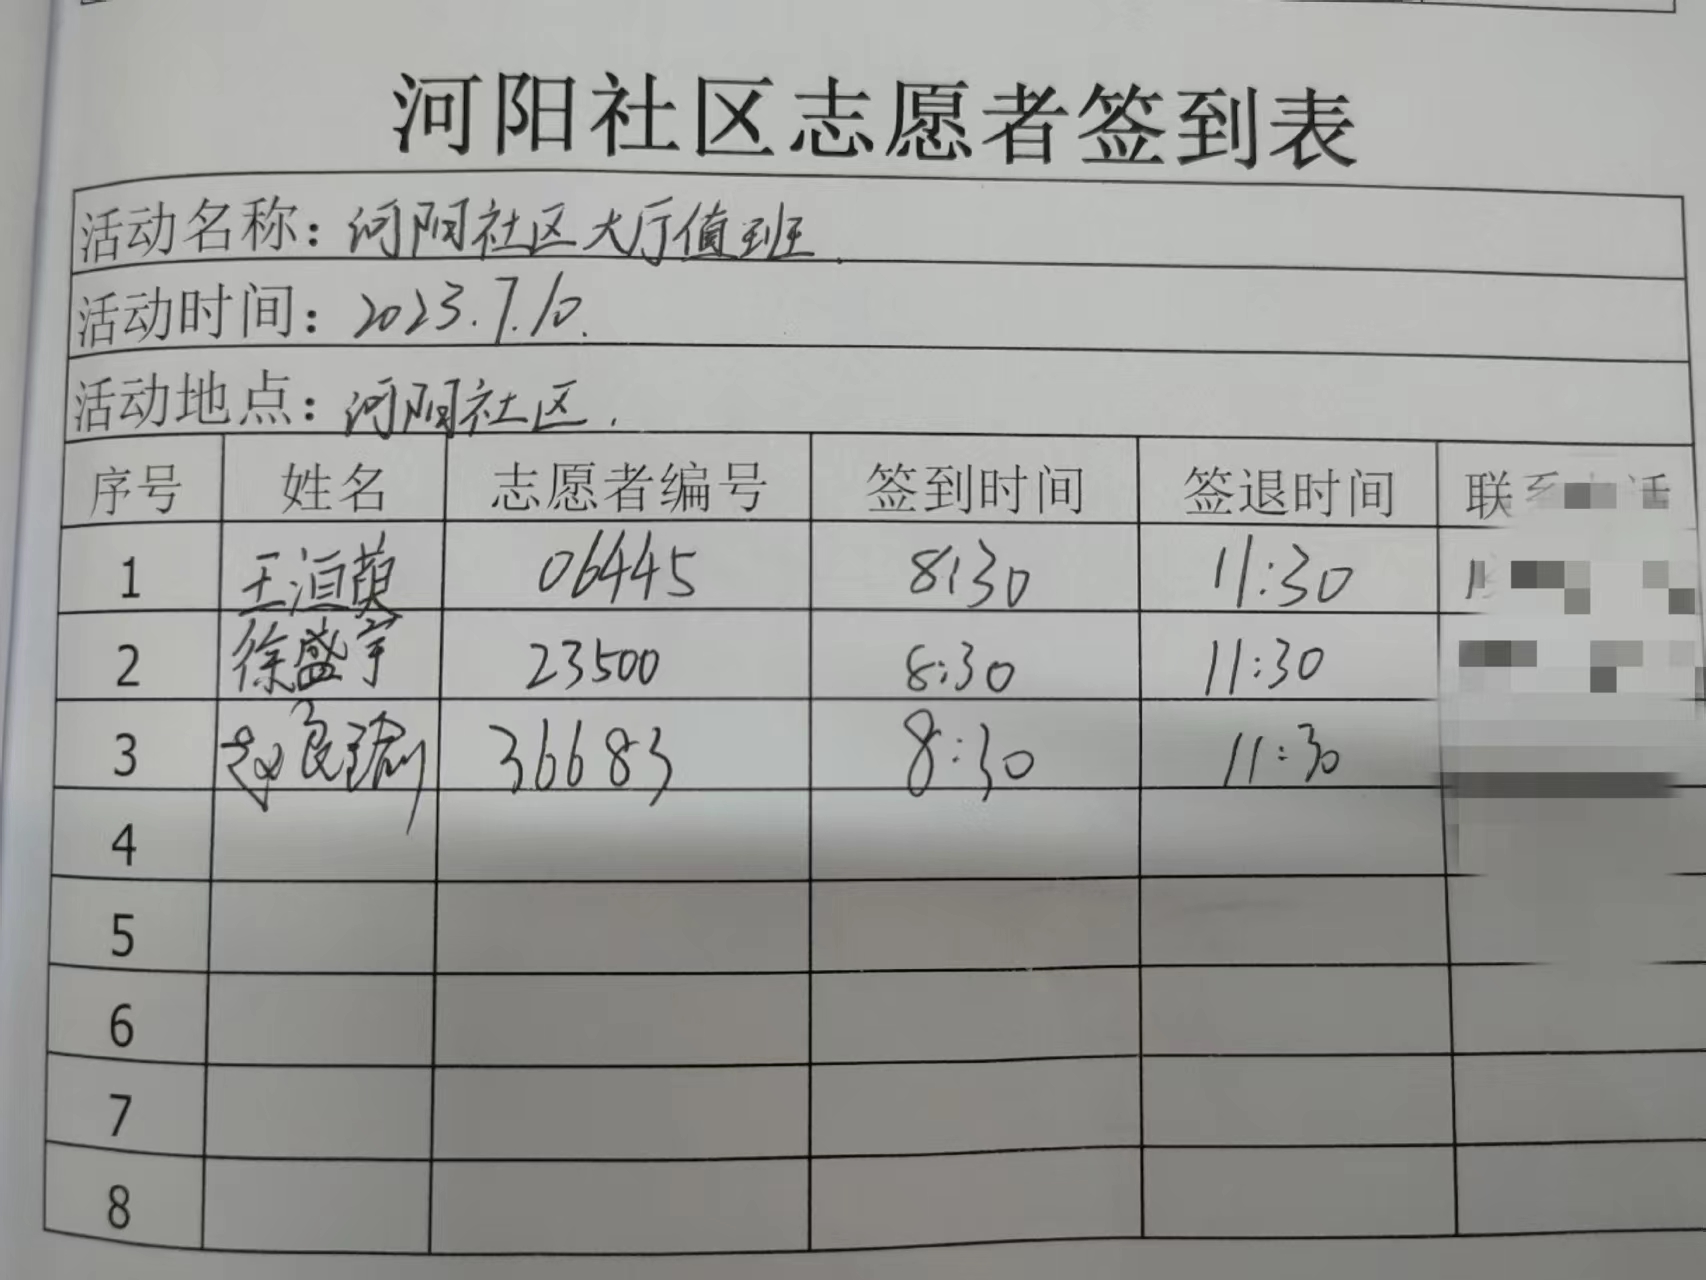 河阳社区志愿者签到表
活动名称：河阳社区大厅值班.
活动时间：2023.7.10.
活动地点：河阳社区.
序号 姓名 志愿者编号 签到时间 签退时间 联系电话
1 王洹萸 06445 8:30 11:30
2 徐盛宇 23500 8:30 11:30
3 赵良瑜 36683 8:30 11:30
4
5
6
7
8